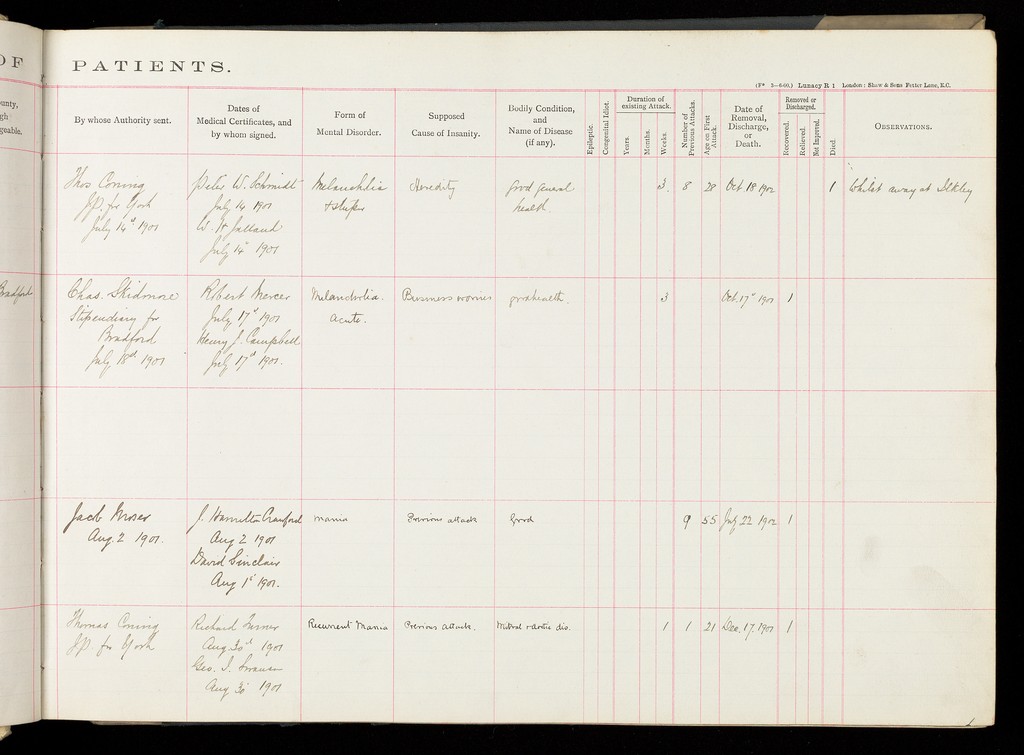 OF
PATIENTS.
(Fᵖ 5—640.) Lunacy R 1 London: Shaw & Sons Fetter Lane, E.C.
By whose Authority sent.
Dates of
Medical Certificates, and
by whom signed.
Form of
Mental Disorder.
Supposed
Cause of Insanity.
Bodily Condition,
and
Name of Disease
(if any).
Epileptic.
Congenital Idiot.
Duration of
existing Attack.
Years.
Months.
Weeks.
Number of
Previous Attacks.
Age on First
Attack.
Date of
Removal,
Discharge,
or
Death.
Removed or
Discharged.
Recovered.
Relieved.
Not Improved.
Died.
OBSERVATIONS.
Thos Coning
J.P. for York
July 14th 1901
Peter W. Schmidt
July 14 1901
W. H.
July 14th 1901
Melancholia
+ stupor
Heredity
good general
health.
3.
8
28
Oct 18 1902
1
Whilst away at Ilkley
Bradford
Chas. Skidmore
Stipendiary for
Bradford
July 18th 1901
Robert Mercer
July 17th 1901
Henry J. Campbell
July 17th 1901.
Melancholia.
Acute.
Business worries
health.
3
Oct. 17th 1901
1
Jacob Moser
Aug. 2 1901.
J. Hamilton Crawford
Aug 2 1901
David Sinclair
Aug 1st 1901.
Mania
Previous attack
Good
9
55
July 22 1902
1
Thomas Coning
J.P. for York
Richard Turner
Aug. 30th 1901
Geo. I. Swanson
Aug 30 1901
Recurrent Mania
Previous attack.
Mitral + aortic dis.
1
1
21
Dec. 17. 1901
1